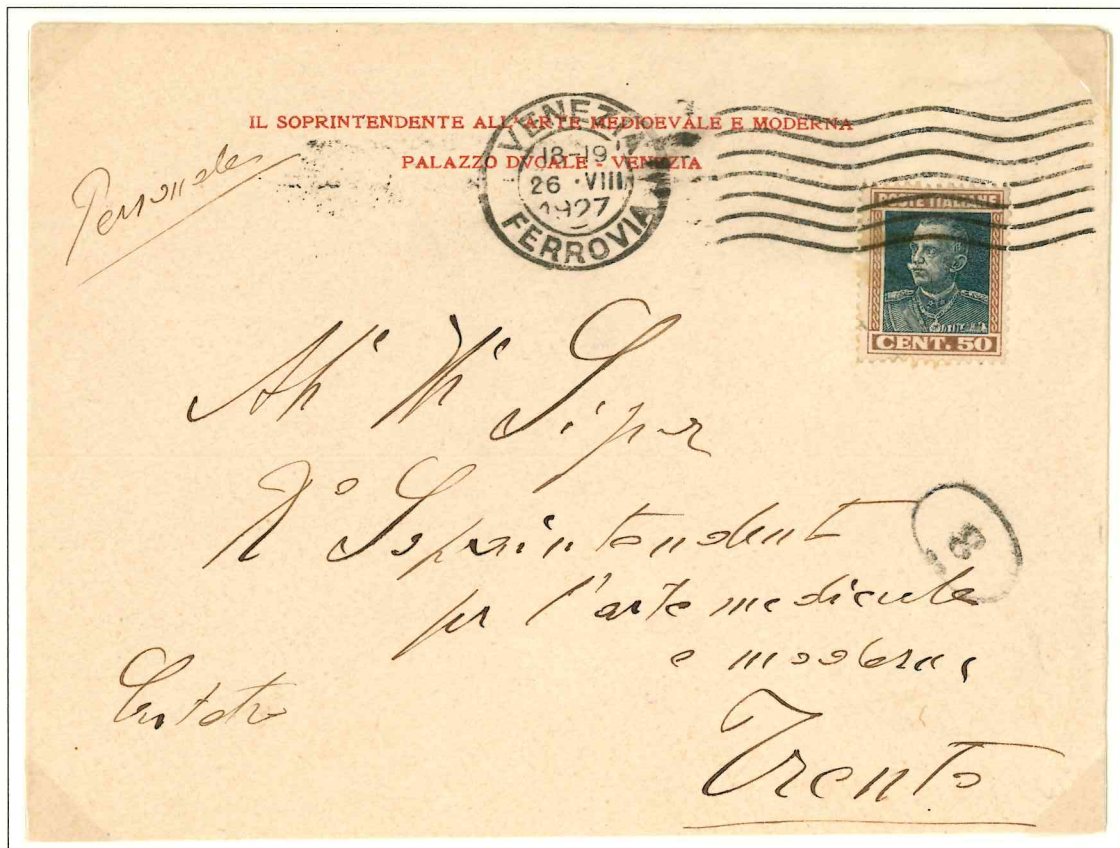 IL SOPRINTENDENTE ALL'ARTE MEDIOEVALE E MODERNA
PALAZZO DVCALE - VENEZIA
Personale
VENEZIA
18-19
26 · VIII
1927
FERROVIA
POSTE ITALIANE
CENT. 50
Sigor
R° Soprintendente
per l'arte medievale
e moderna
Trento